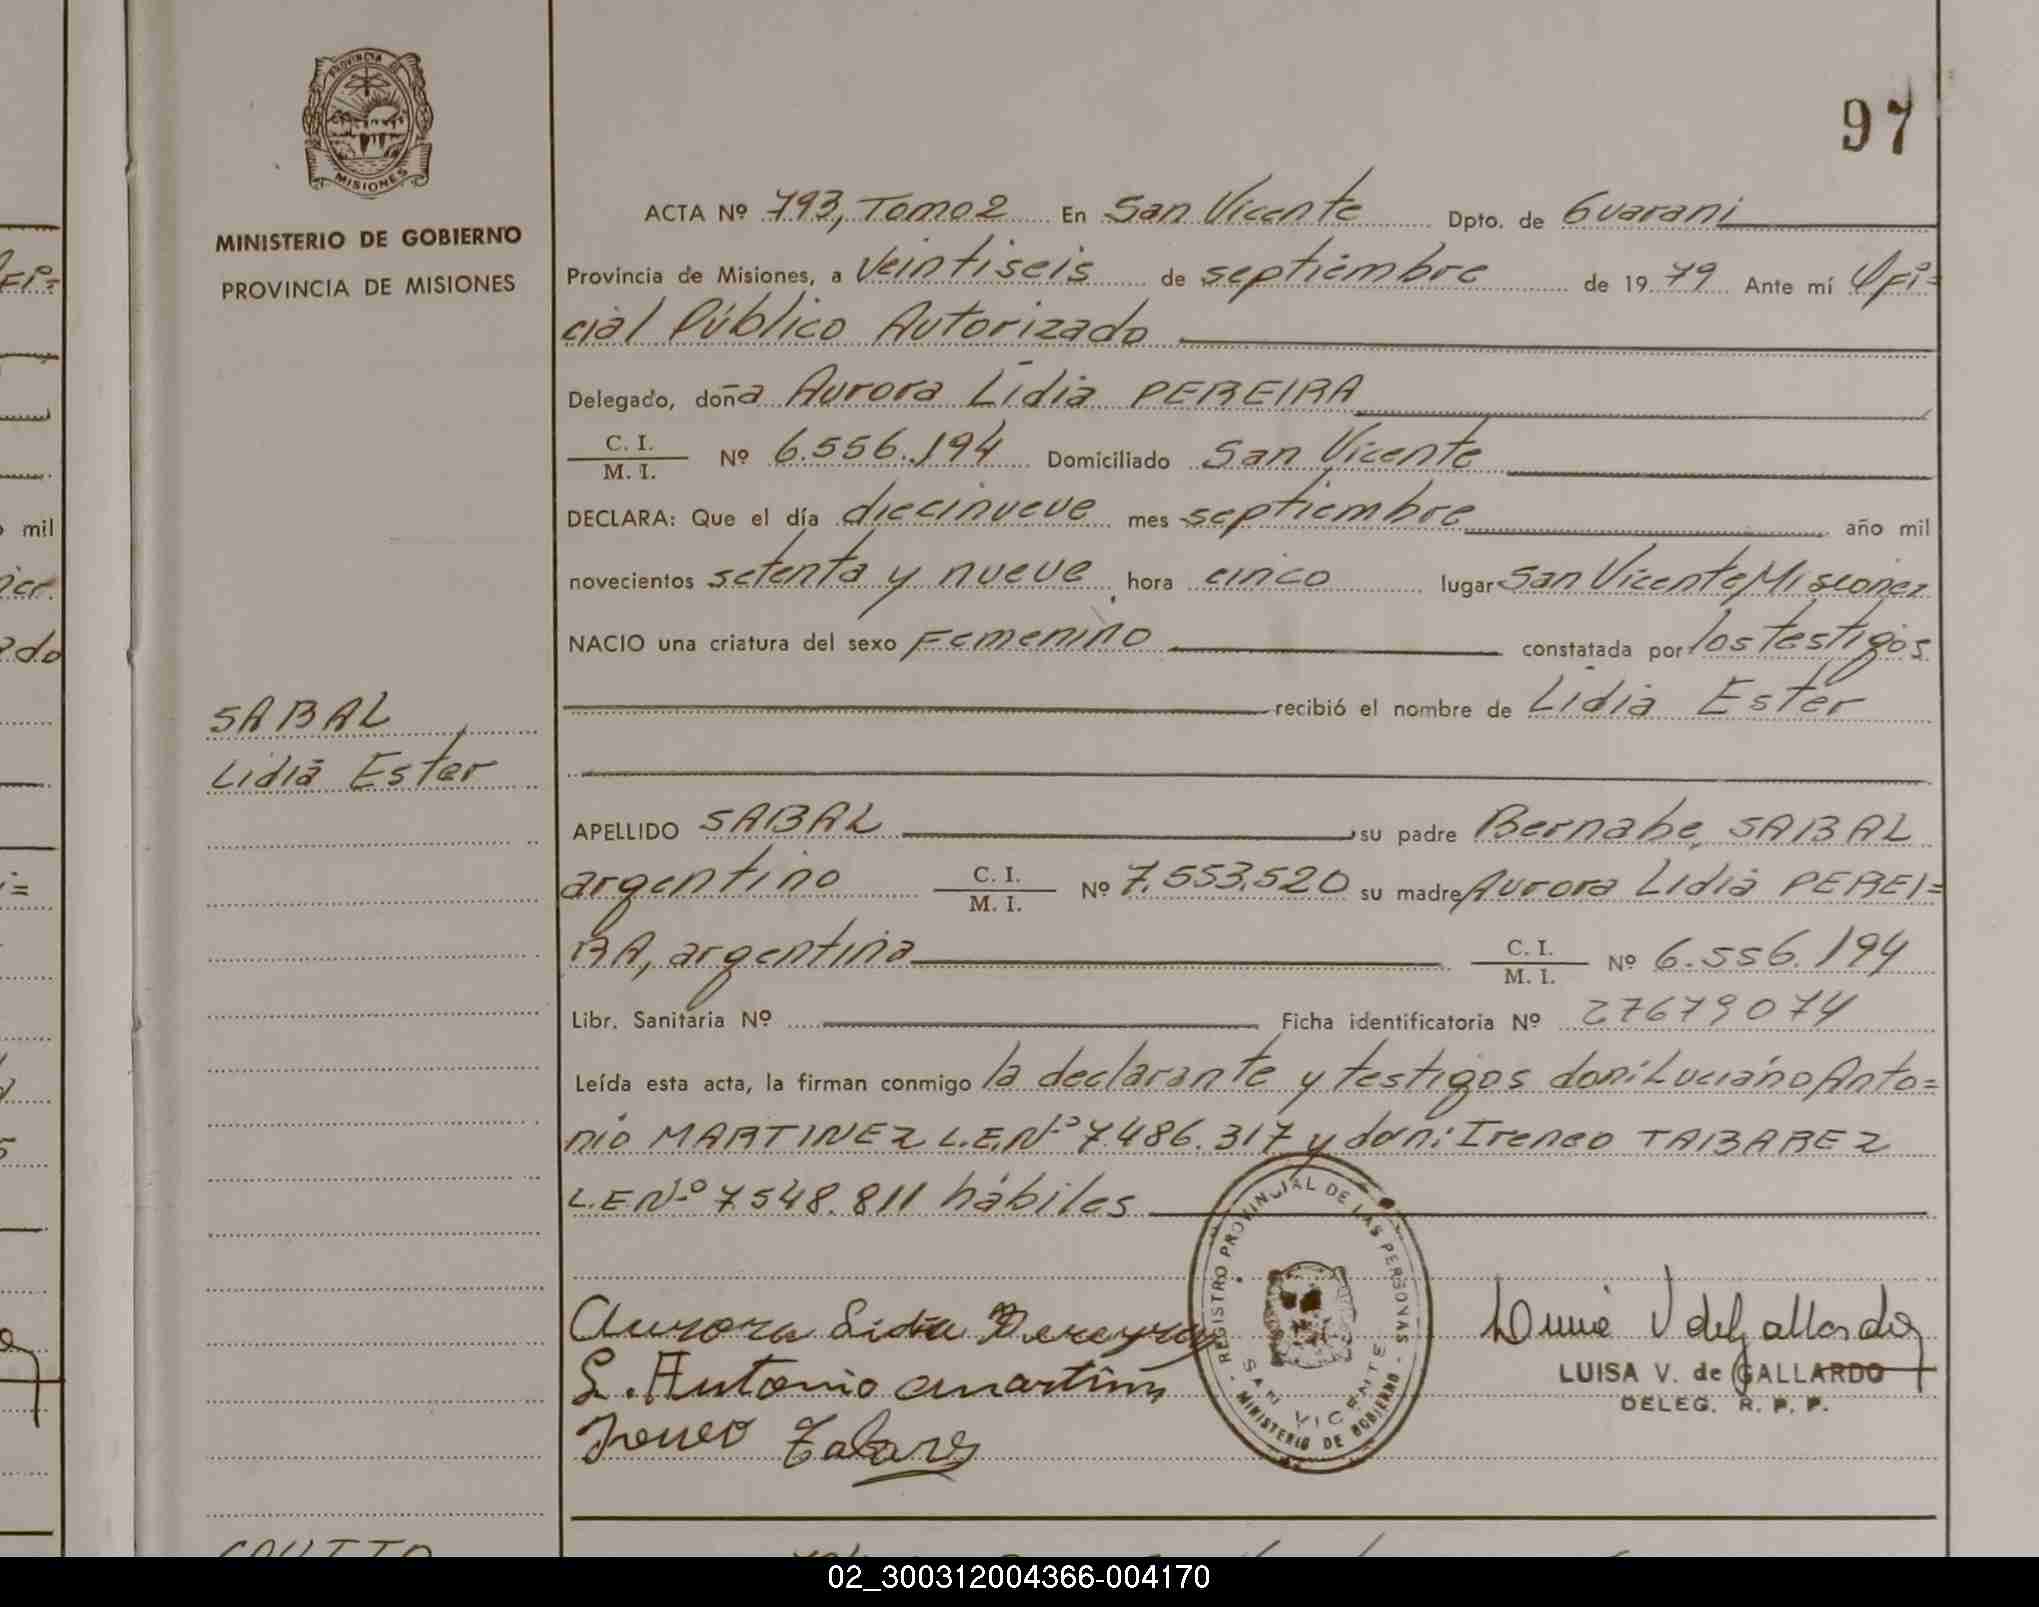 97
PROVINCIA DE
MISIONES
MINISTERIO DE GOBIERNO
PROVINCIA DE MISIONES
ACTA Nº 793, Tomo 2 En San Vicente Dpto. de Guarani
Provincia de Misiones, a veintiseis de septiembre de 1979 Ante mí Ofi=
cial Público Autorizado
Delegado, doña Aurora Lidia PEREIRA
C. I.
M. I. Nº 6.556.194 Domiciliado San Vicente
DECLARA: Que el día diecinueve mes septiembre año mil
novecientos setenta y nueve, hora cinco lugar San Vicente, Misiones
NACIO una criatura del sexo Femenino constatada por los testigos
recibió el nombre de Lidia Ester
SABAL
Lidia Ester
APELLIDO SABAL su padre Bernabe, SABAL
argentino C. I. M. I. Nº 7.553.520 su madre Aurora Lidia PEREI=
RA, argentina C. I. M. I. Nº 6.556.194
Libr. Sanitaria Nº Ficha identificatoria Nº 27679074
Leída esta acta, la firman conmigo la declarante y testigos don: Luciano Anto=
nio MARTINEZ L.E.Nº 7.486.317 y don: Ireneo TABAREZ
L.E.Nº 7548.811 hábiles
REGISTRO PROVINCIAL DE LAS PERSONAS
SAN VICENTE
MINISTERIO DE GOBIERNO
Aurora Lidia Pereyra
L. Antonio Martinez
Ireneo Tabarez
LUISA V. de GALLARDO
DELEG. R. P. P.
02_300312004366-004170